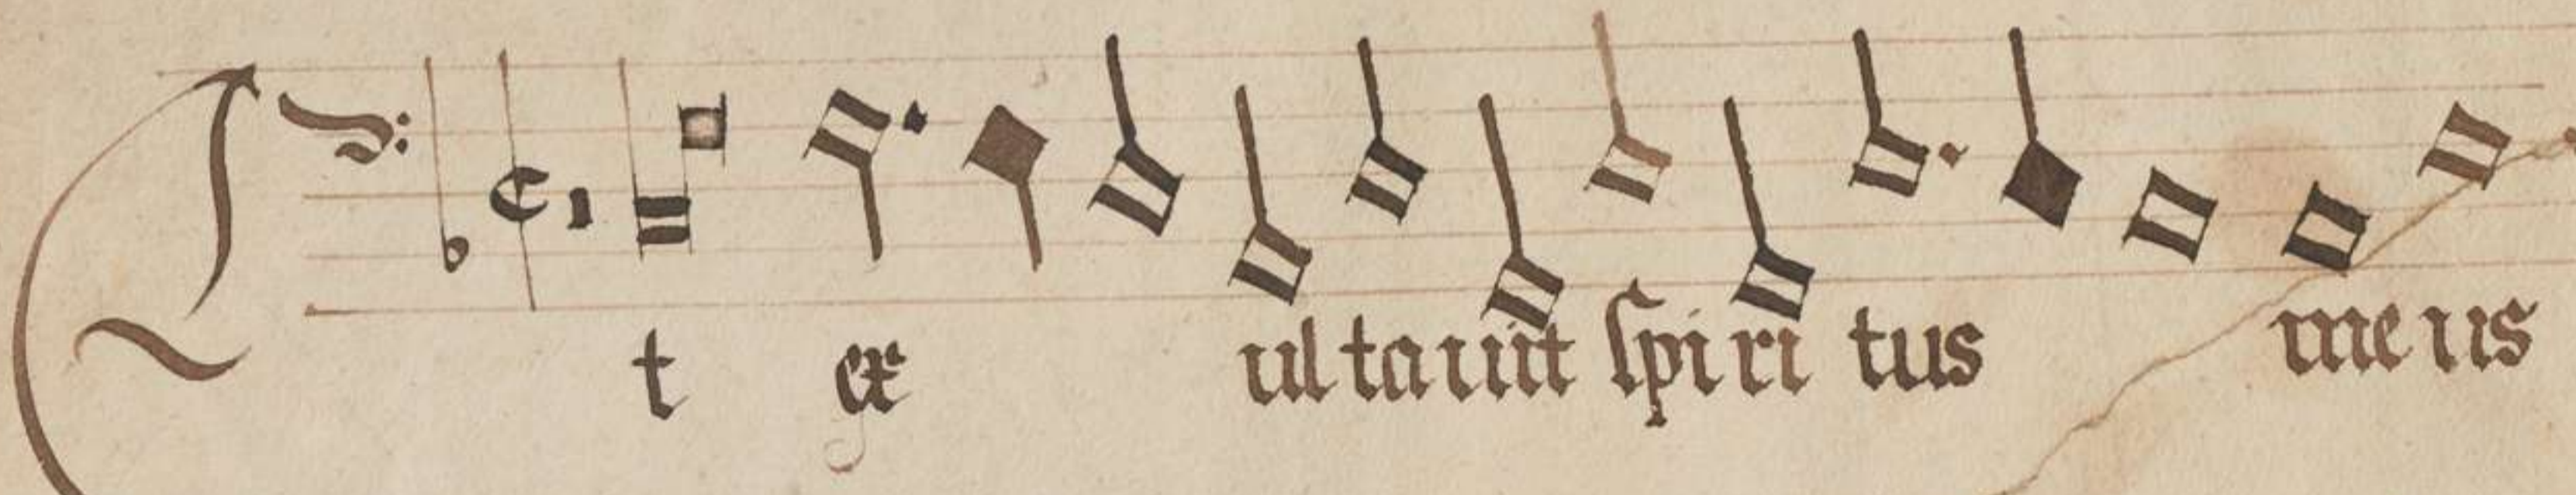 Et ex ultauit spiri tus meus